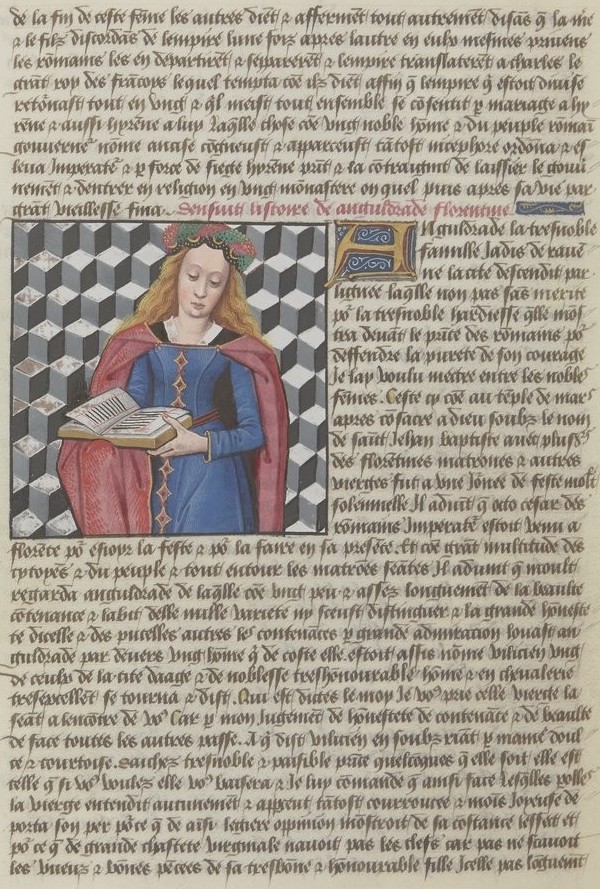 de la fin de ceste fēme les autres diēt ⁊ afferment tout autremēt disās q̄ la me
⁊ le filz discordās de lempire lune foiz apres lautre en eulx mesmes priuens
les rōmains les en departirēt ⁊ separerēt ⁊ lempire translaterēt a charles le
grāt roy des francoys lequel tempta cōe ilz diēt affin q̄ lempire q̄ estoit diuise
retōnast tout en vng ⁊ q̄l meist tout ensemble se cōsentit p̱ mariage a hy
rēne ⁊ aussi hyrēne a luy laq̄lle chose cōe vng noble hōme ⁊ du peuple rōmai
gouuerne nōme cogneust ⁊ apparceust tātost nicephore ordōna ⁊ es
leua Imperate ⁊ p̱ force de siege hyrēne prīt ⁊ la cōtraignit de laissier le gouū
nemēt ⁊ dentrer en religion en vng mōnastere ouquel puis apres sa vie par
grāt vieillesse fina. Sensuit listoire de anguldrade florentine
Anguldrade la tresnoble
famille Jadis de rauē
ne la cite descendit par
lignee laq̄lle non pas sās merite
po^r la tresnoble hardiesse q̄lle mōs
tra deuāt le prīce des rōmains po^r
deffendre la purete de son courage
Je lay voulu mectre entre les nobles
fēmes. Ceste cy cōe au tēple de mar
apres cōsacre a dieu soubz le nom
de sait Jehan baptiste auec pluss^rs
des florētines matrōnes ⁊ autres
vierges fut a vne Jōnee de feste molt
solennelle Il aduīt q̄ octo cesar des
rōmains Imperate^r estoit venu a
florēce po^r esioyr la feste ⁊ po^r la faire en sa presēce. Et cōe grāt multitude des
cytoyēs ⁊ du peuple ⁊ tout entour les matrōes seātes Il aduint q̄ moult
regarda anguldrade de laq̄lle cōe vng peu ⁊ assez longuemēt de la beaulte
cōtenance ⁊ labit delle nulle variete ny sceust distinguer ⁊ la grande hōneste
te dicelle ⁊ des pucelles autres les contenāces p̱ grande admiracion louast an
guldrade par deuers vng hōme q̄ de coste elle estoit assis nōme vilicien vng
de ceulx de la cite daage ⁊ de noblesse treshonnourable hōme ⁊ en cheualerie
tresexcellēt se tourna ⁊ dist. Qui est dictes le moy Je vo^s prie celle vierge la
seāt a lencōtre de vo^s Car p̱ mon Jugemēt de hōnestete de contenāce ⁊ de beaulte
de face toutes les autres passe. A q̄ dist vilicien en soubz riāt p̱ maniē doul
ce ⁊ courtoise. Saichez tresnoble ⁊ paisible prīce quelcq̄ues q̄ elle soit elle est
telle q̄ si vo^s voulez elle vo^s baisera ⁊ Je luy cōmande q̄ ainsi face lesq̄lles polles
la vierge entendit aucunemēt ⁊ apparut tātost courroucee ⁊ mois Joyeuse de
porta son per po^r ce q̄ de aisi legiere oppinion mōstroit de sa cōstance lesset et
po^r ce q̄ de grande chastete virginale nauoit pas les clefs car pas ne scauoit
les vueuz ⁊ bōnes pēcees de sa tresbōne ⁊ honnourable fille Icelle pas lōguemēt